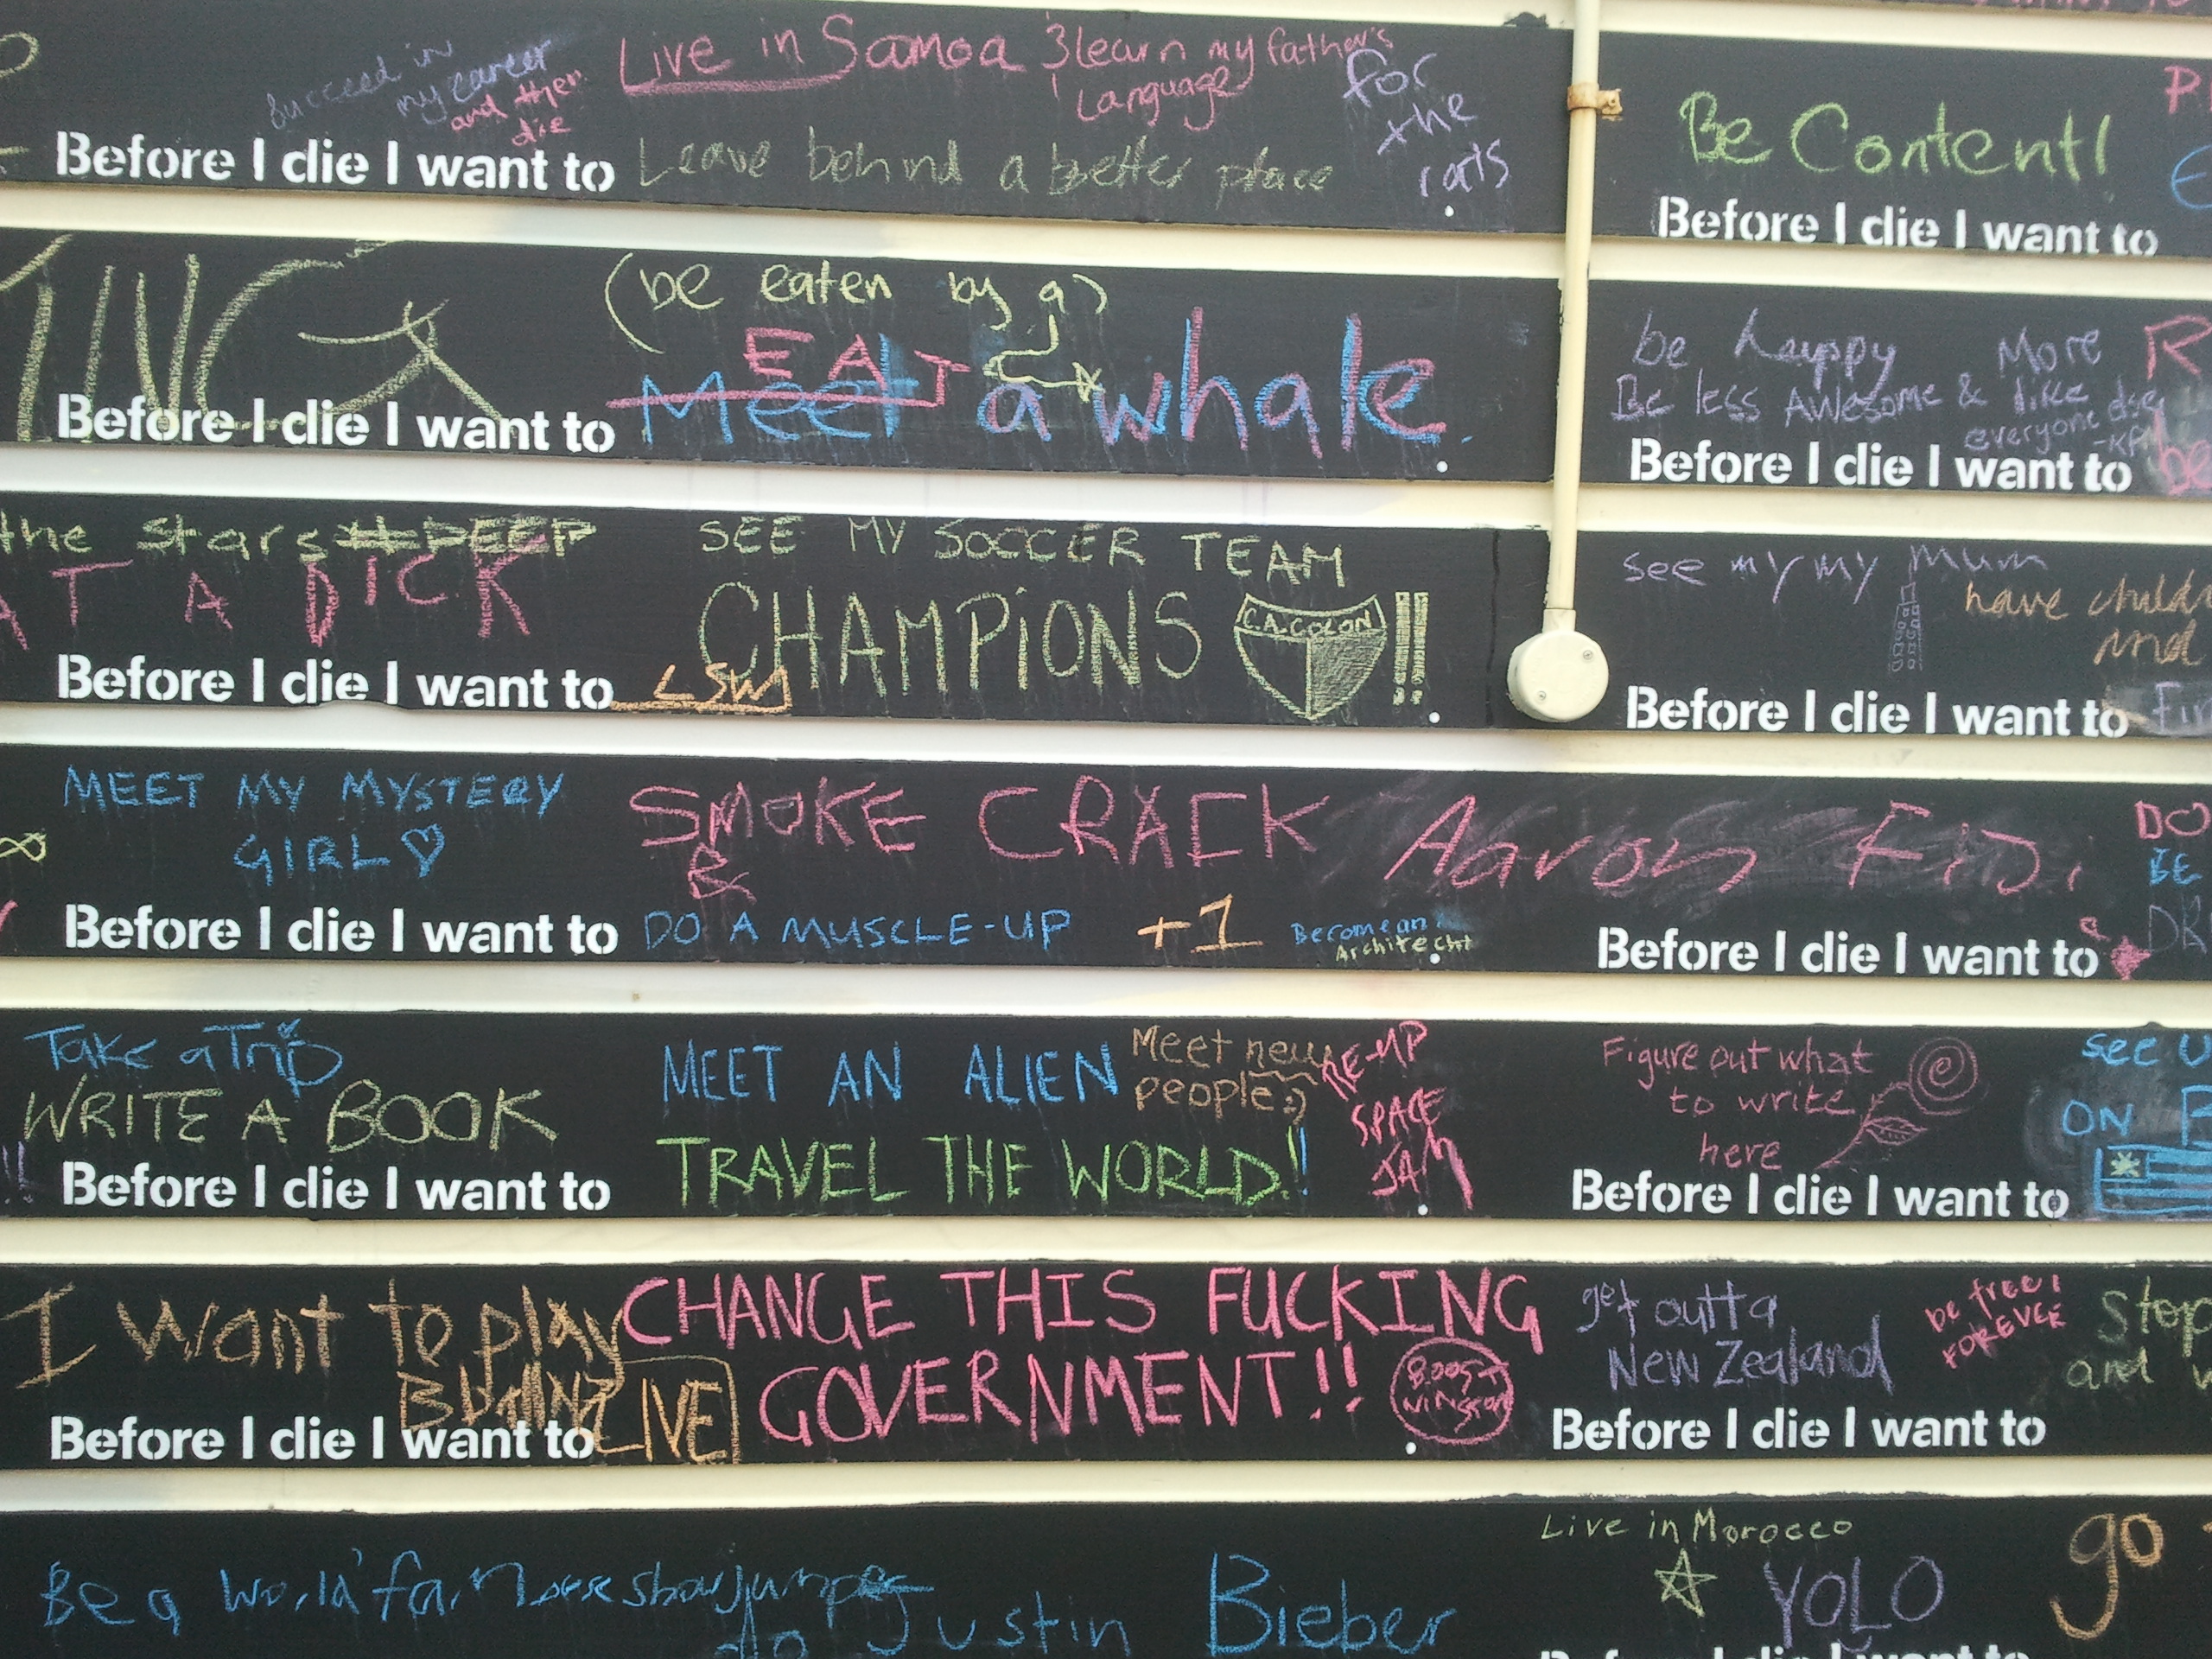 succeed in
my career
and then
die
Live in Samoa & learn my father's
Language
for
the
rats
Before I die I want to Leave behind a better place .
Be Content!
Before I die I want to
(be eaten by a)
EAT
Before I die I want to Meet a whale.
be happy More
Be less Awesome & like
everyone else
Before I die I want to be
the stars #DEEP
AT A DICK
SEE MY SOCCER TEAM
CHAMPiONS C.A.COLON !!
Before I die I want to LSW .
see my my Mum
have child
and
Before I die I want to
MEET MY MYSTERY
GIRL
Before I die I want to
SMOKE CRACK
&
DO A MUSCLE-UP +1 Become an
Architecht
Aaron
Before I die I want to
DO
BE
Take a Trip
WRITE A BOOK
Before I die I want to
MEET AN ALIEN Meet new
people :)
RE-UP
SPACE
JAM
TRAVEL THE WORLD!!
Figure out what
to write
here
Before I die I want to
see
ON
I want to play
Before I die I want to
LIVE
CHANGE THIS FUCKING
GOVERNMENT!!
BOOST
get outta
New Zealand
be free!
FOREVER
Stop
and
Before I die I want to
Be a world
do Justin Bieber
Live in Morocco
YOLO
go
Before I die I want to